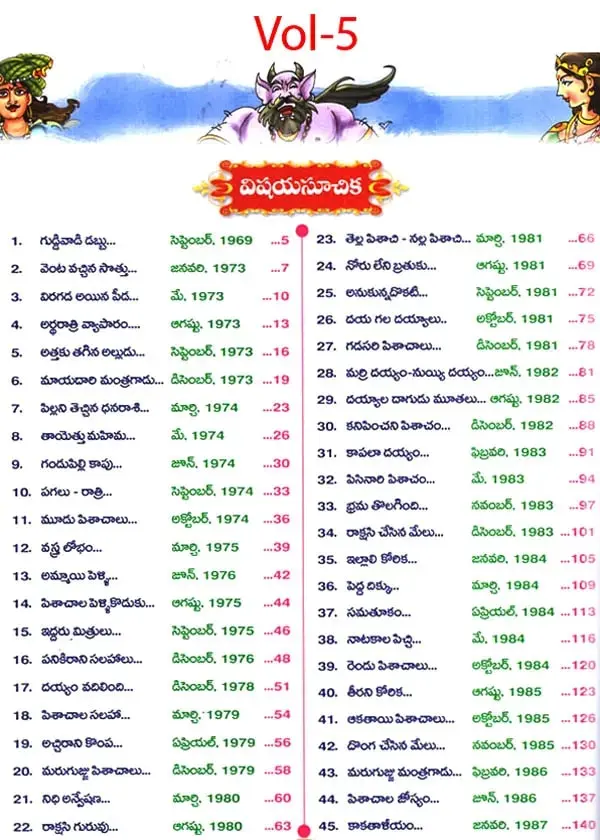 Vol-5
విషయసూచిక
1. గుడ్డివాడి డబ్బు... సెప్టెంబర్, 1969 ...5
2. వెంట వచ్చిన సొత్తు... జనవరి, 1973 ...7
3. విరగడ అయిన పీడ... మే, 1973 ...10
4. అర్థరాత్రి వ్యాపారం.... ఆగష్టు, 1973 ...13
5. అత్తకు తగిన అల్లుడు... సెప్టెంబర్, 1973 ...16
6. మాయదారి మంత్రగాడు... డిసెంబర్, 1973 ...19
7. పిల్లని తెచ్చిన ధనరాశి... మార్చి, 1974 ...23
8. తాయెత్తు మహిమ... మే, 1974 ...26
9. గండుపిల్లి కాపు... జూన్, 1974 ...30
10. పగలు - రాత్రి... సెప్టెంబర్, 1974 ...33
11. మూడు పిశాచాలు... అక్టోబర్, 1974 ...36
12. వస్త్ర లోభం... మార్చి, 1975 ...39
13. అమ్మాయి పెళ్ళి... జూన్, 1976 ...42
14. పిశాచాల పెళ్ళికొడుకు... ఆగష్టు, 1975 ...44
15. ఇద్దరు మిత్రులు... సెప్టెంబర్, 1975 ...46
16. పనికిరాని సలహాలు... డిసెంబర్, 1976 ...48
17. దయ్యం వదిలింది... డిసెంబర్, 1978 ...51
18. పిశాచాల సలహా... మార్చి, 1979 ...54
19. అచ్చిరాని కొంప... ఏప్రియల్, 1979 ...56
20. మరుగుజ్జు పిశాచాలు... డిసెంబర్, 1979 ...58
21. నిధి అన్వేషణ... మార్చి, 1980 ...60
22. రాక్షస గురువు... ఆగష్టు, 1980 ...63
23. తెల్ల పిశాచి - నల్ల పిశాచి... మార్చి, 1981 ...66
24. నోరు లేని బ్రతుకు... ఆగష్టు, 1981 ...69
25. అనుకున్నదొకటి... సెప్టెంబర్, 1981 ...72
26. దయ గల దయ్యాలు.. అక్టోబర్, 1981 ...75
27. గడసరి పిశాచాలు... డిసెంబర్, 1981 ...78
28. మర్రి దయ్యం-నుయ్యి దయ్యం...జూన్, 1982 ...81
29. దయ్యాల దాగుడు మూతలు... ఆగష్టు, 1982 ...85
30. కనిపించని పిశాచం... డిసెంబర్, 1982 ...88
31. కాపలా దయ్యం... ఫిబ్రవరి, 1983 ...91
32. పిసినారి పిశాచం... మే, 1983 ...94
33. భ్రమ తొలగింది... నవంబర్, 1983 ...97
34. రాక్షసి చేసిన మేలు... డిసెంబర్, 1983 ...101
35. ఇల్లాలి కోరిక... జనవరి, 1984 ...105
36. పెద్ద దిక్కు... మార్చి, 1984 ...109
37. సమతూకం... ఏప్రియల్, 1984 ...113
38. నాటకాల పిచ్చి... మే, 1984 ...116
39. రెండు పిశాచాలు... అక్టోబర్, 1984 ...120
40. తీరని కోరిక... ఆగష్టు, 1985 ...123
41. ఆకతాయి పిశాచాలు... అక్టోబర్, 1985 ...126
42. దొంగ చేసిన మేలు... నవంబర్, 1985 ...130
43. మరుగుజ్జు మంత్రగాడు... ఫిబ్రవరి, 1986 ...133
44. పిశాచాల జోస్యం... జూన్, 1986 ...137
45. కాకతాళీయం... జనవరి, 1987 ...140